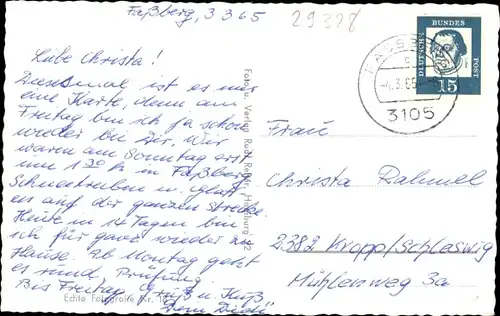 Faßberg, 3 3 65
29328
Liebe Christa!
Diesesmal ist es nur
eine Karte, denn am
Freitag bin ich ja schon
wieder bei Dir. Wir
waren am Sonntag erst
um 1 30 h in Faßberg
Schneetreiben u. glatt
es auf der ganzen Strecke.
Heute in 14 Tagen bin
ich für ganz wieder zu
Hause. Ab Montag geht
es rund, Prüfung.
Bis Freitag Gruß u. Kuß
Dein Didi
Echte Fotografie Nr.
Foto u. Verlag Rud. Hamburg
DEUTSCHE BUNDES POST
15
FASSBERG
-4.3.65
3105
Fraue
Christa Dahmell
2382 Kropp/Schleswig
Mühlenweg 3a